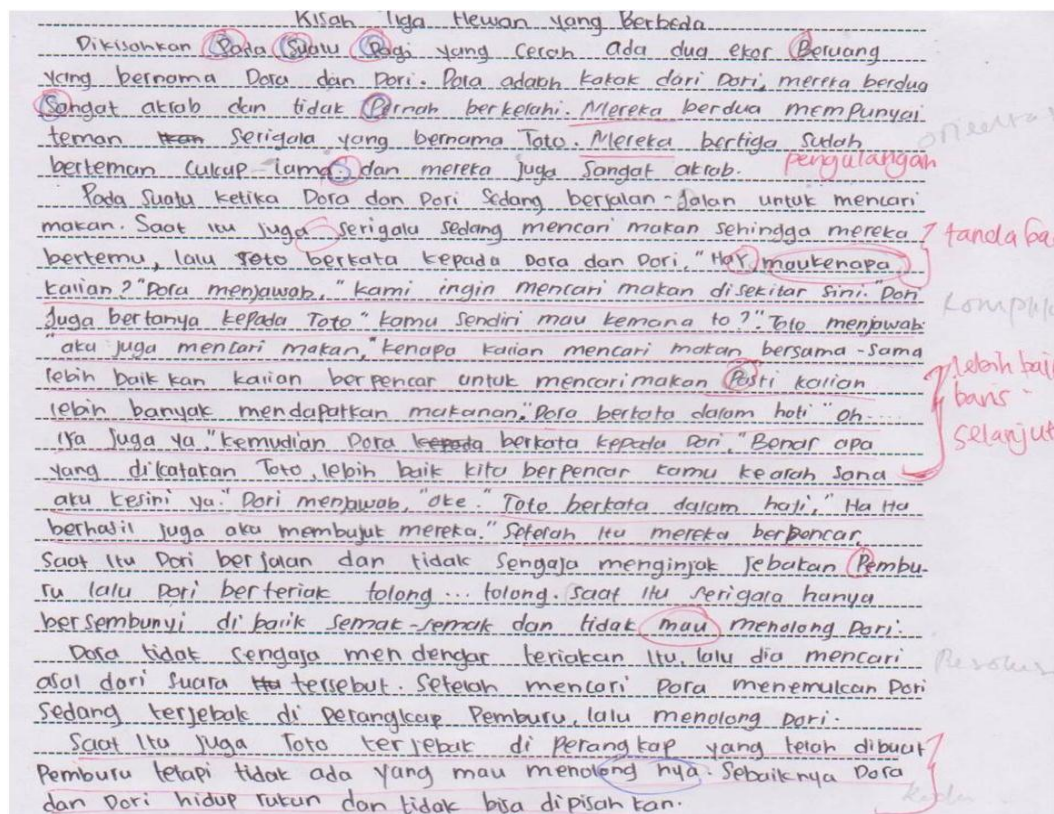 Kisah Tiga Hewan yang Berbeda
Dikisahkan Pada Suatu Pagi yang Cerah ada dua ekor Beruang
yang bernama Dora dan Dori. Dora adalah kakak dari Dori, mereka berdua
Sangat akrab dan tidak Pernah berkelahi. Mereka berdua mempunyai
teman Serigala yang bernama Toto. Mereka bertiga Sudah
orientas
berteman Cukup lama, dan mereka juga Sangat akrab.
pengulangan
Pada Suatu ketika Dora dan Dori Sedang berjalan-Jalan untuk mencari
makan. Saat itu juga serigala sedang mencari makan sehingga mereka
tanda ba
bertemu, lalu Toto berkata kepada Dora dan Dori, "Hay maukenapa
kalian? "Dora menjawab, "kami ingin mencari makan disekitar sini." Dori
Komplik
Juga bertanya kepada Toto "kamu sendiri mau kemana to?". Toto menjawab
"aku juga mencari makan," kenapa kalian mencari makan bersama-Sama
lebih baik kan kalian berpencar untuk mencarimakan Pasti kalian
lebih bai
baris -
lebih banyak mendapatkan makanan." Dora berkata dalam hati "Oh...
selanjut
iya juga ya "kemudian Dora kepada berkata kepada Dori, "Benar apa
yang dikatakan Toto, lebih baik kita berpencar kamu kearah Sana
aku kesini ya." Dori menjawab, "oke." Toto berkata dalam hati, "Ha Ha
berhasil juga aku membujuk mereka." Setelah itu mereka berpencar,
Saat Itu Dori berjalan dan tidak Sengaja menginjak Jebakan Pembu-
ru lalu Dori berteriak tolong ... tolong. Saat Itu serigala hanya
bersembunyi di balik semak-semak dan tidak mau menolong Dori.
Dora tidak Sengaja men dengar teriakan Itu, lalu dia mencari
Resolus
asal dari Suara tersebut. Setelah mencari Dora menemukan Dori
Sedang terjebak di Perangkap Pemburu, lalu menolong Dori.
Saat Itu Juga Toto terjebak di Perangkap yang telah dibuat
Pemburu tetapi tidak ada yang mau menolong nya. Sebaiknya Dora
dan Dori hidup rukun dan tidak bisa dipisahkan.